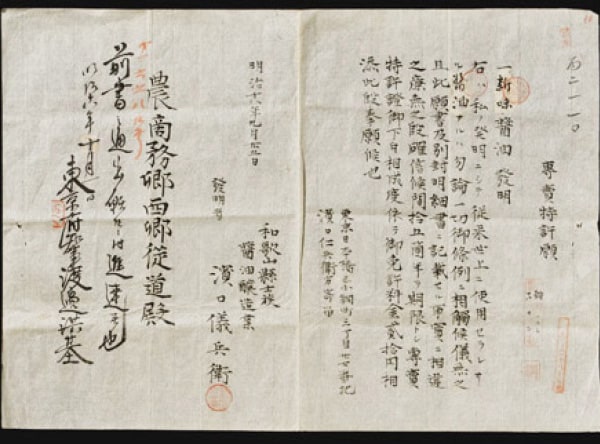 専賣特許願
一新味醤油 発明
右ハ私ノ発明ニシテ従来世上ニ使用セラレザ
ル醤油ナルハ勿論一切御條例ニ相觸候儀無之
且此願書及別封明細書ニ記載セル事實ニ相違
之廉無之段確信候間拾五箇年ヲ期限トシ専賣
特許證御下付相成度依テ御免許料金貳拾円相
添此段奉願候也
東京日本橋區小網町三丁目廿七番地
濱口仁兵衛方寄留
和歌山縣士族
醤油醸造業
發明者
濱口儀兵衛
明治十八年九月廿五日
農商務卿西郷従道殿
前書之通出願ニ付進達候也
明治十八年十月
東京府知事渡邉洪基